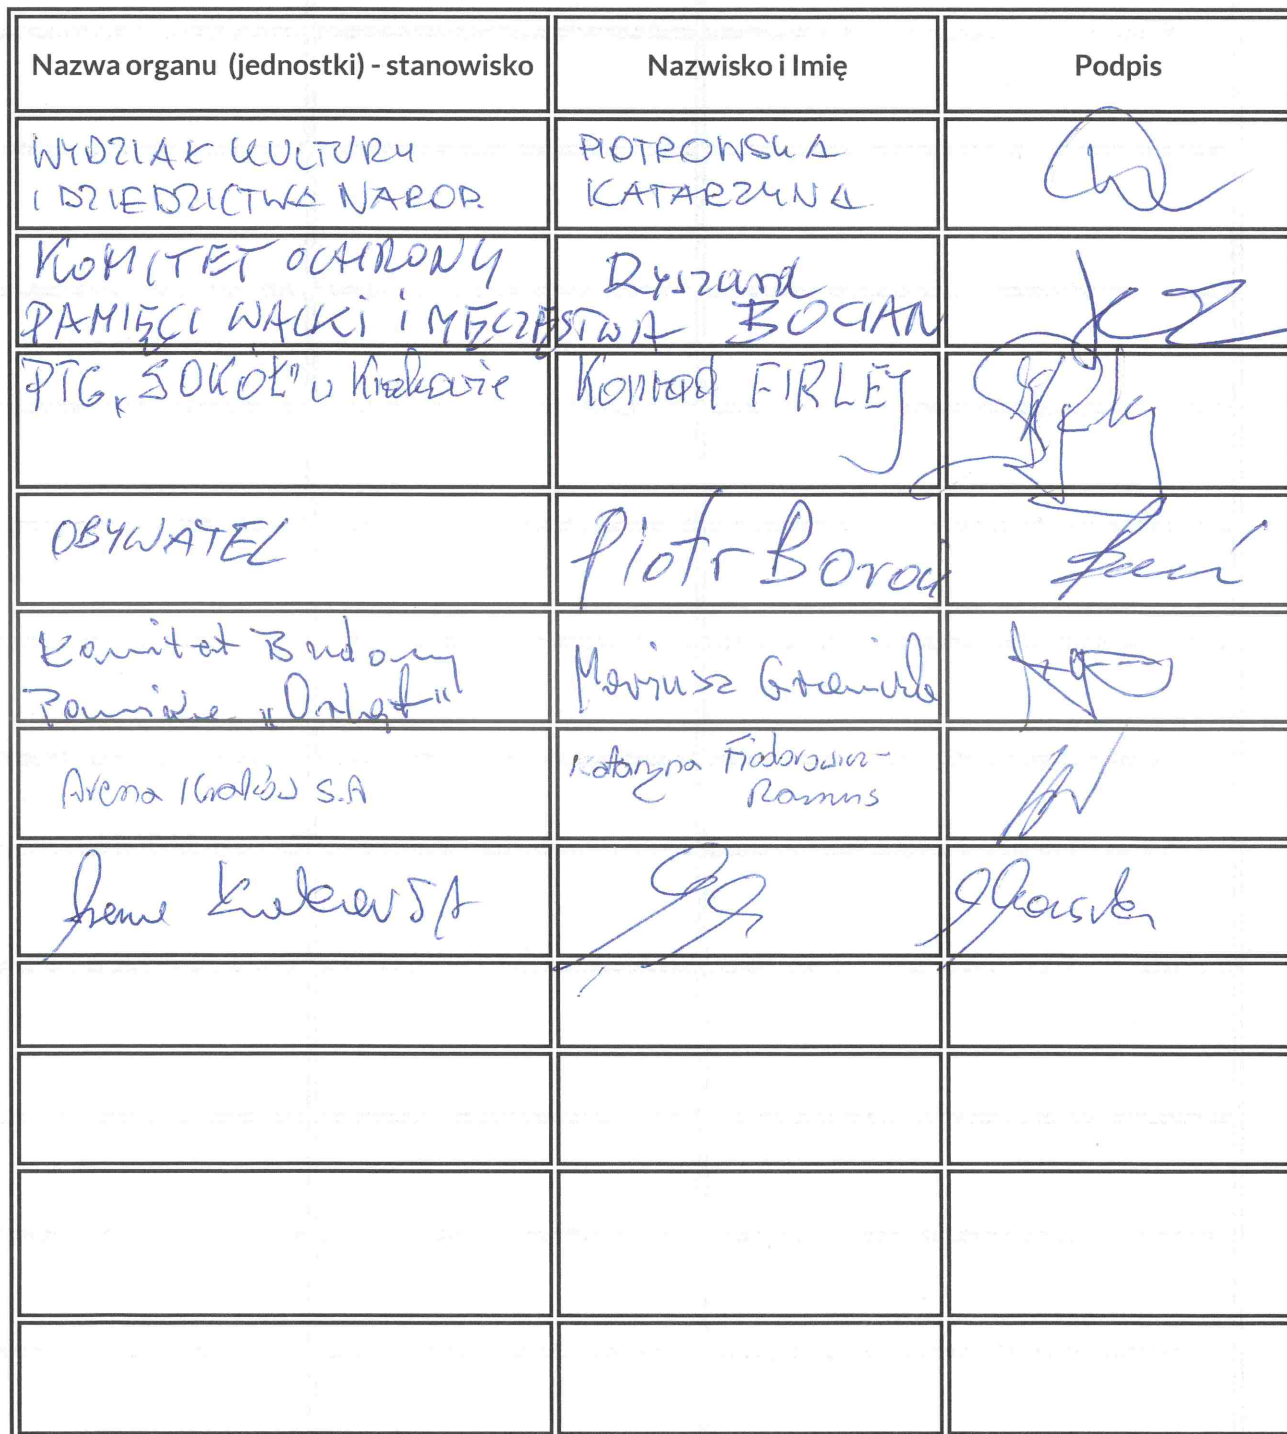 Nazwa organu (jednostki) - stanowisko
Nazwisko i Imię
Podpis
WYDZIAŁ KULTURY
I DZIEDZICTWA NAROD.
PIOTROWSKA
KATARZYNA
KOMITET OCHRONY
PAMIĘCI WALKI i MĘCZEŃSTWA
Ryszard
BOCIAN
PTG „SOKÓŁ" w Krakowie
Konrad FIRLEJ
OBYWATEL
Piotr Boroń
Komitet Budowy
Pomnika „Orląt"
Mariusz
Arena Kraków S.A
Katarzyna Fiodorowicz-
Ramus
Arena Kraków SA